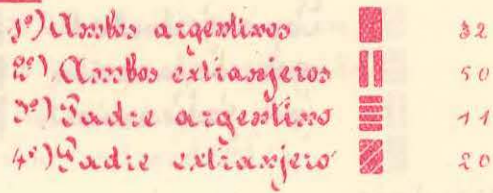 1º) Ambos argentinos 32
2º) Ambos extranjeros 50
3º) Padre argentino 11
4º) Padre extranjero 20